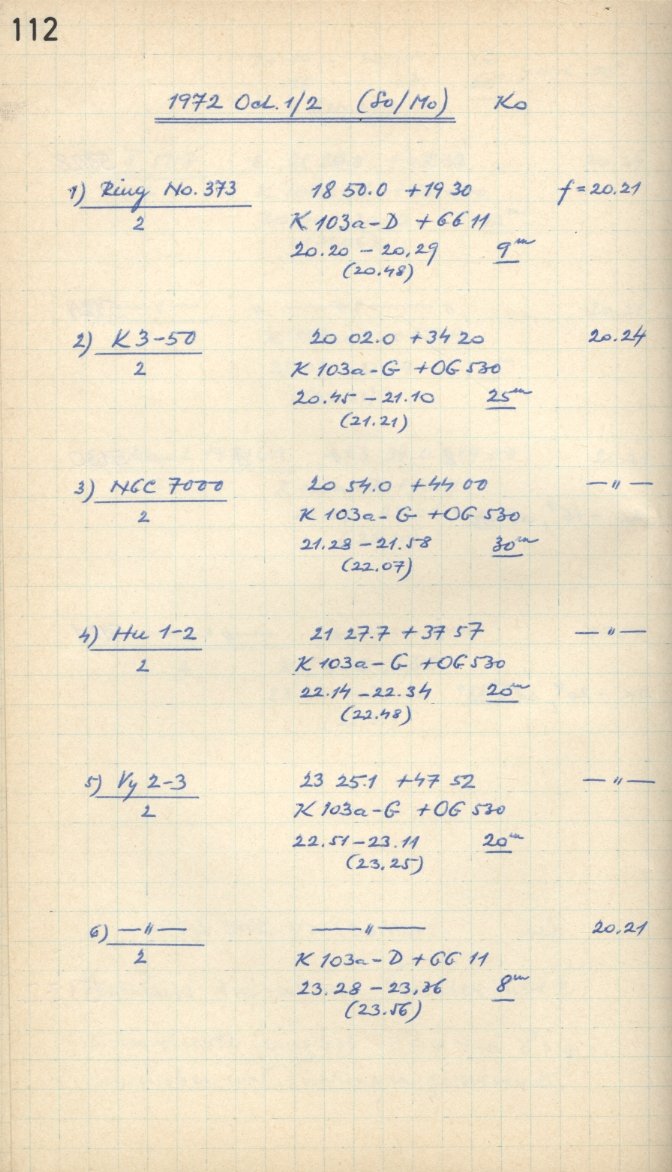 112
1972 Oct. 1/2 (So/Mo) Ko
1) Ring No. 373 18 50.0 +19 30 f = 20.21
2 K 103a-D + GG 11
20.20 – 20.29 9ᵐ
(20.48)
2) K 3-50 20 02.0 +34 20 20.24
2 K 103a-G +OG 530
20.45 – 21.10 25ᵐ
(21.21)
3) NGC 7000 20 54.0 +44 00 —〃—
2 K 103a-G +OG 530
21.28 – 21.58 30ᵐ
(22.07)
4) Hu 1-2 21 27.7 +37 57 —〃—
2 K 103a-G +OG 530
22.14 – 22.34 20ᵐ
(22.48)
5) Vy 2-3 23 25.1 +47 52 —〃—
2 K 103a-G +OG 530
22.51 – 23.11 20ᵐ
(23.25)
6) —〃— —〃— 20.21
2 K 103a-D + GG 11
23.28 – 23.36 8ᵐ
(23.56)